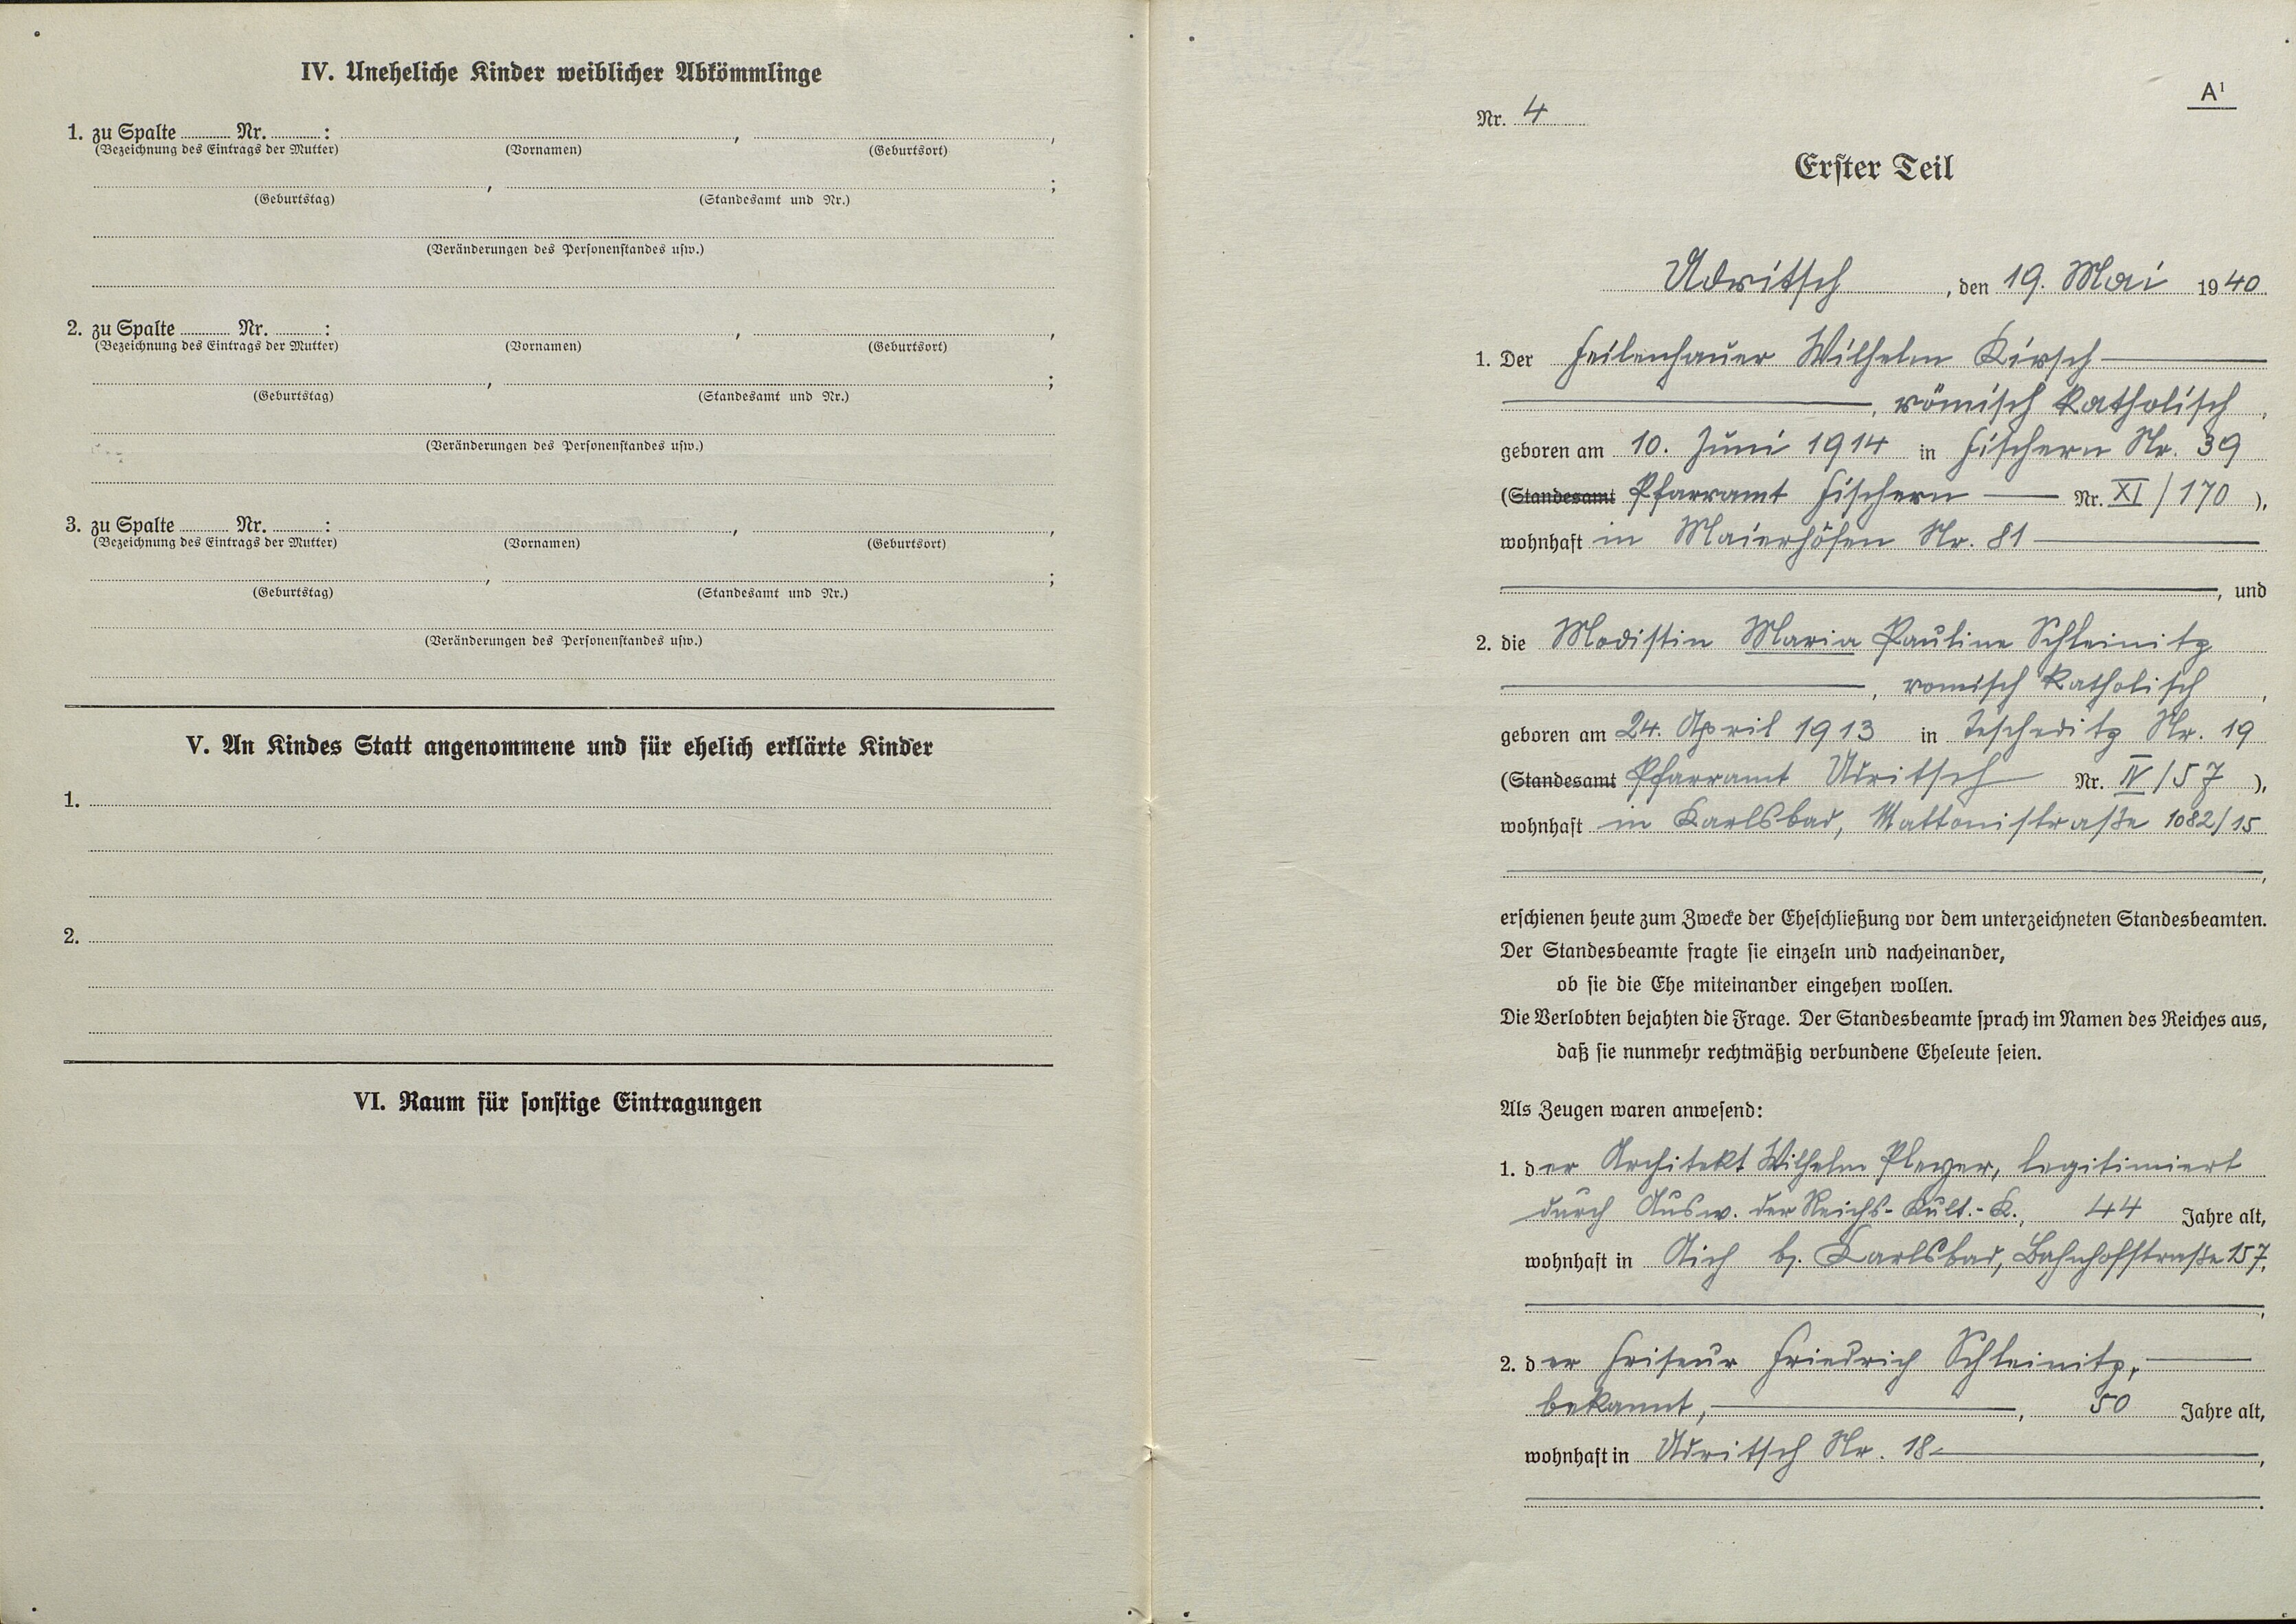 IV. Uneheliche Kinder weiblicher Abkömmlinge
1. zu Spalte ........ Nr. ........ : , ,
(Bezeichnung des Eintrags der Mutter) (Vornamen) (Geburtsort)
, ;
(Geburtstag) (Standesamt und Nr.)
(Veränderungen des Personenstandes usw.)
2. zu Spalte ........ Nr. ........ : , ,
(Bezeichnung des Eintrags der Mutter) (Vornamen) (Geburtsort)
, ;
(Geburtstag) (Standesamt und Nr.)
(Veränderungen des Personenstandes usw.)
3. zu Spalte ........ Nr. ........ : , ,
(Bezeichnung des Eintrags der Mutter) (Vornamen) (Geburtsort)
, ;
(Geburtstag) (Standesamt und Nr.)
(Veränderungen des Personenstandes usw.)
V. An Kindes Statt angenommene und für ehelich erklärte Kinder
1.
2.
VI. Raum für sonstige Eintragungen
A¹
Nr. 4
Erster Teil
Udritsch, den 19. Mai 1940
1. Der Feilenhauer Wilhelm Kirsch
, römisch katholisch,
geboren am 10. Juni 1914 in Fischern Nr. 39
(Standesamt Pfarramt Fischern — Nr. XI/170),
wohnhaft in Maierhöfen Nr. 81
, und
2. die Modistin Maria Pauline Schleinitz
, romisch katholisch,
geboren am 24. April 1913 in Tescheditz Nr. 19
(Standesamt Pfarramt Udritsch Nr. IV/57),
wohnhaft in Karlsbad, Mattonistraße 1082/15
,
erschienen heute zum Zwecke der Eheschließung vor dem unterzeichneten Standesbeamten.
Der Standesbeamte fragte sie einzeln und nacheinander,
ob sie die Ehe miteinander eingehen wollen.
Die Verlobten bejahten die Frage. Der Standesbeamte sprach im Namen des Reiches aus,
daß sie nunmehr rechtmäßig verbundene Eheleute seien.
Als Zeugen waren anwesend:
1. der Architekt Wilhelm Pleyer, legitimiert
durch Ausw. der Reichs-Kult.-K., 44 Jahre alt,
wohnhaft in Aich b. Karlsbad, Bahnhofstraße 157,
,
2. der Friseur Friedrich Schleinitz,
bekannt, , 50 Jahre alt,
wohnhaft in Udritsch Nr. 18 ,
.